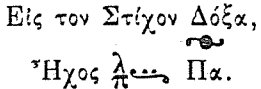 Εἰς τον Στίχον Δόξα,
Ἦχος λ/π Πα.